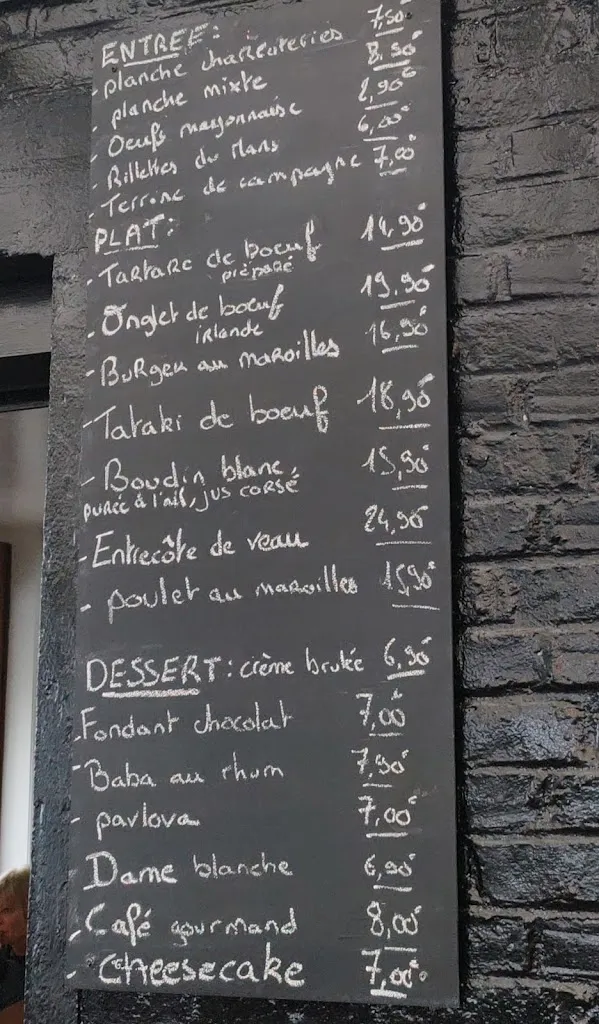 ENTREE:
- planche charcuteries 7,50€
- planche mixte 8,50€
- Oeufs mayonnaise 2,90€
- Rillettes du Mans 6,00€
- Terrine de campagne 7,00€
PLAT:
- Tartare de boeuf 14,90€
préparé
- Onglet de boeuf 19,90€
irlande
- Burger au maroilles 16,90€
- Tataki de boeuf 18,90€
- Boudin blanc, 15,90€
purée à l'ail, jus corsé
- Entrecôte de veau 24,90€
- poulet au maroilles 15,90€
DESSERT: crème brulée 6,90€
- Fondant chocolat 7,00€
- Baba au rhum 7,90€
- pavlova 7,00€
Dame blanche 6,90€
- Café gourmand 8,00€
- cheesecake 7,00€